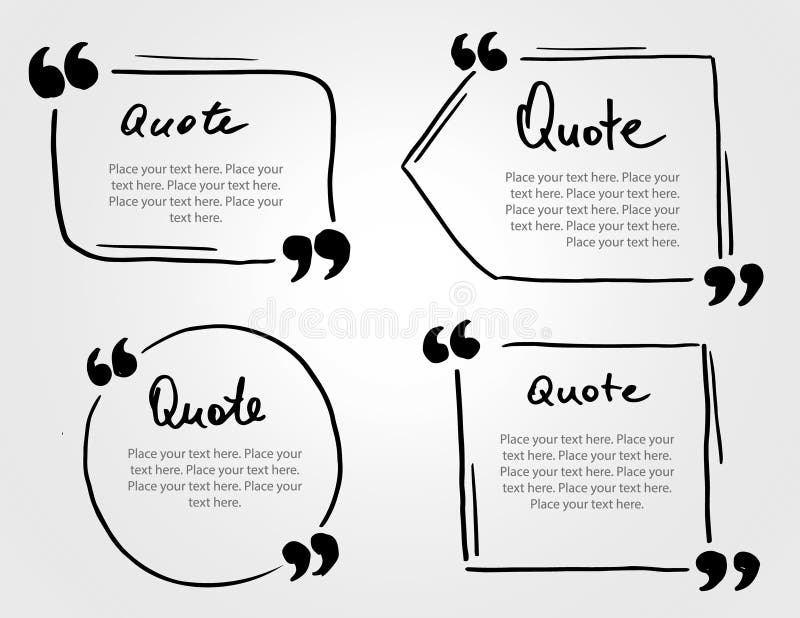 Quote
Place your text here. Place your
text here. Place your text here.
Place your text here. Place your
text here.
Quote
Place your text here. Place your
text here. Place your text here.
Place your text here. Place your
text here. Place your text here.
Place your text here.
Quote
Place your text here. Place your
text here. Place your text here.
Place your text here. Place your
text here.
Quote
Place your text here. Place your
text here. Place your text here.
Place your text here. Place your
text here. Place your text here.
Place your text here.
dreamstime